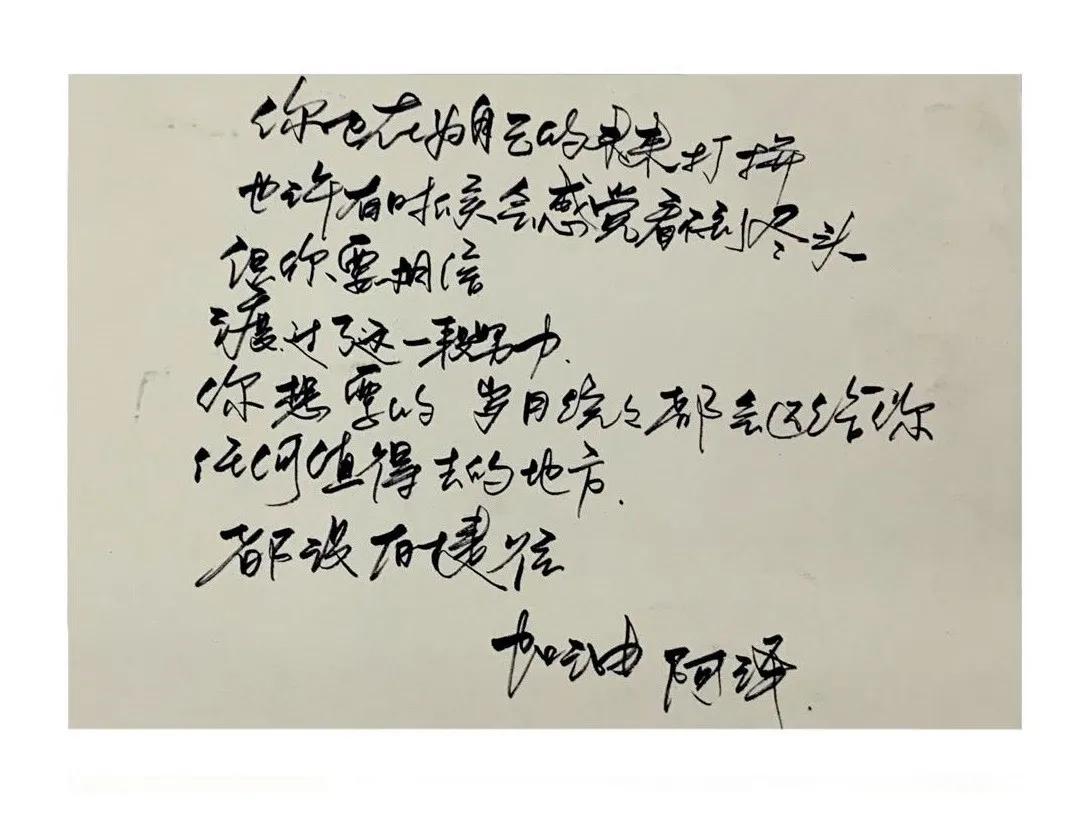 你也在为自己的未来打拼
也许有时候会感觉看不到尽头
但你要相信
渡过了这一段努力
你想要的 岁月统统都会还给你
任何值得去的地方
都没有捷径
加油 阿泽